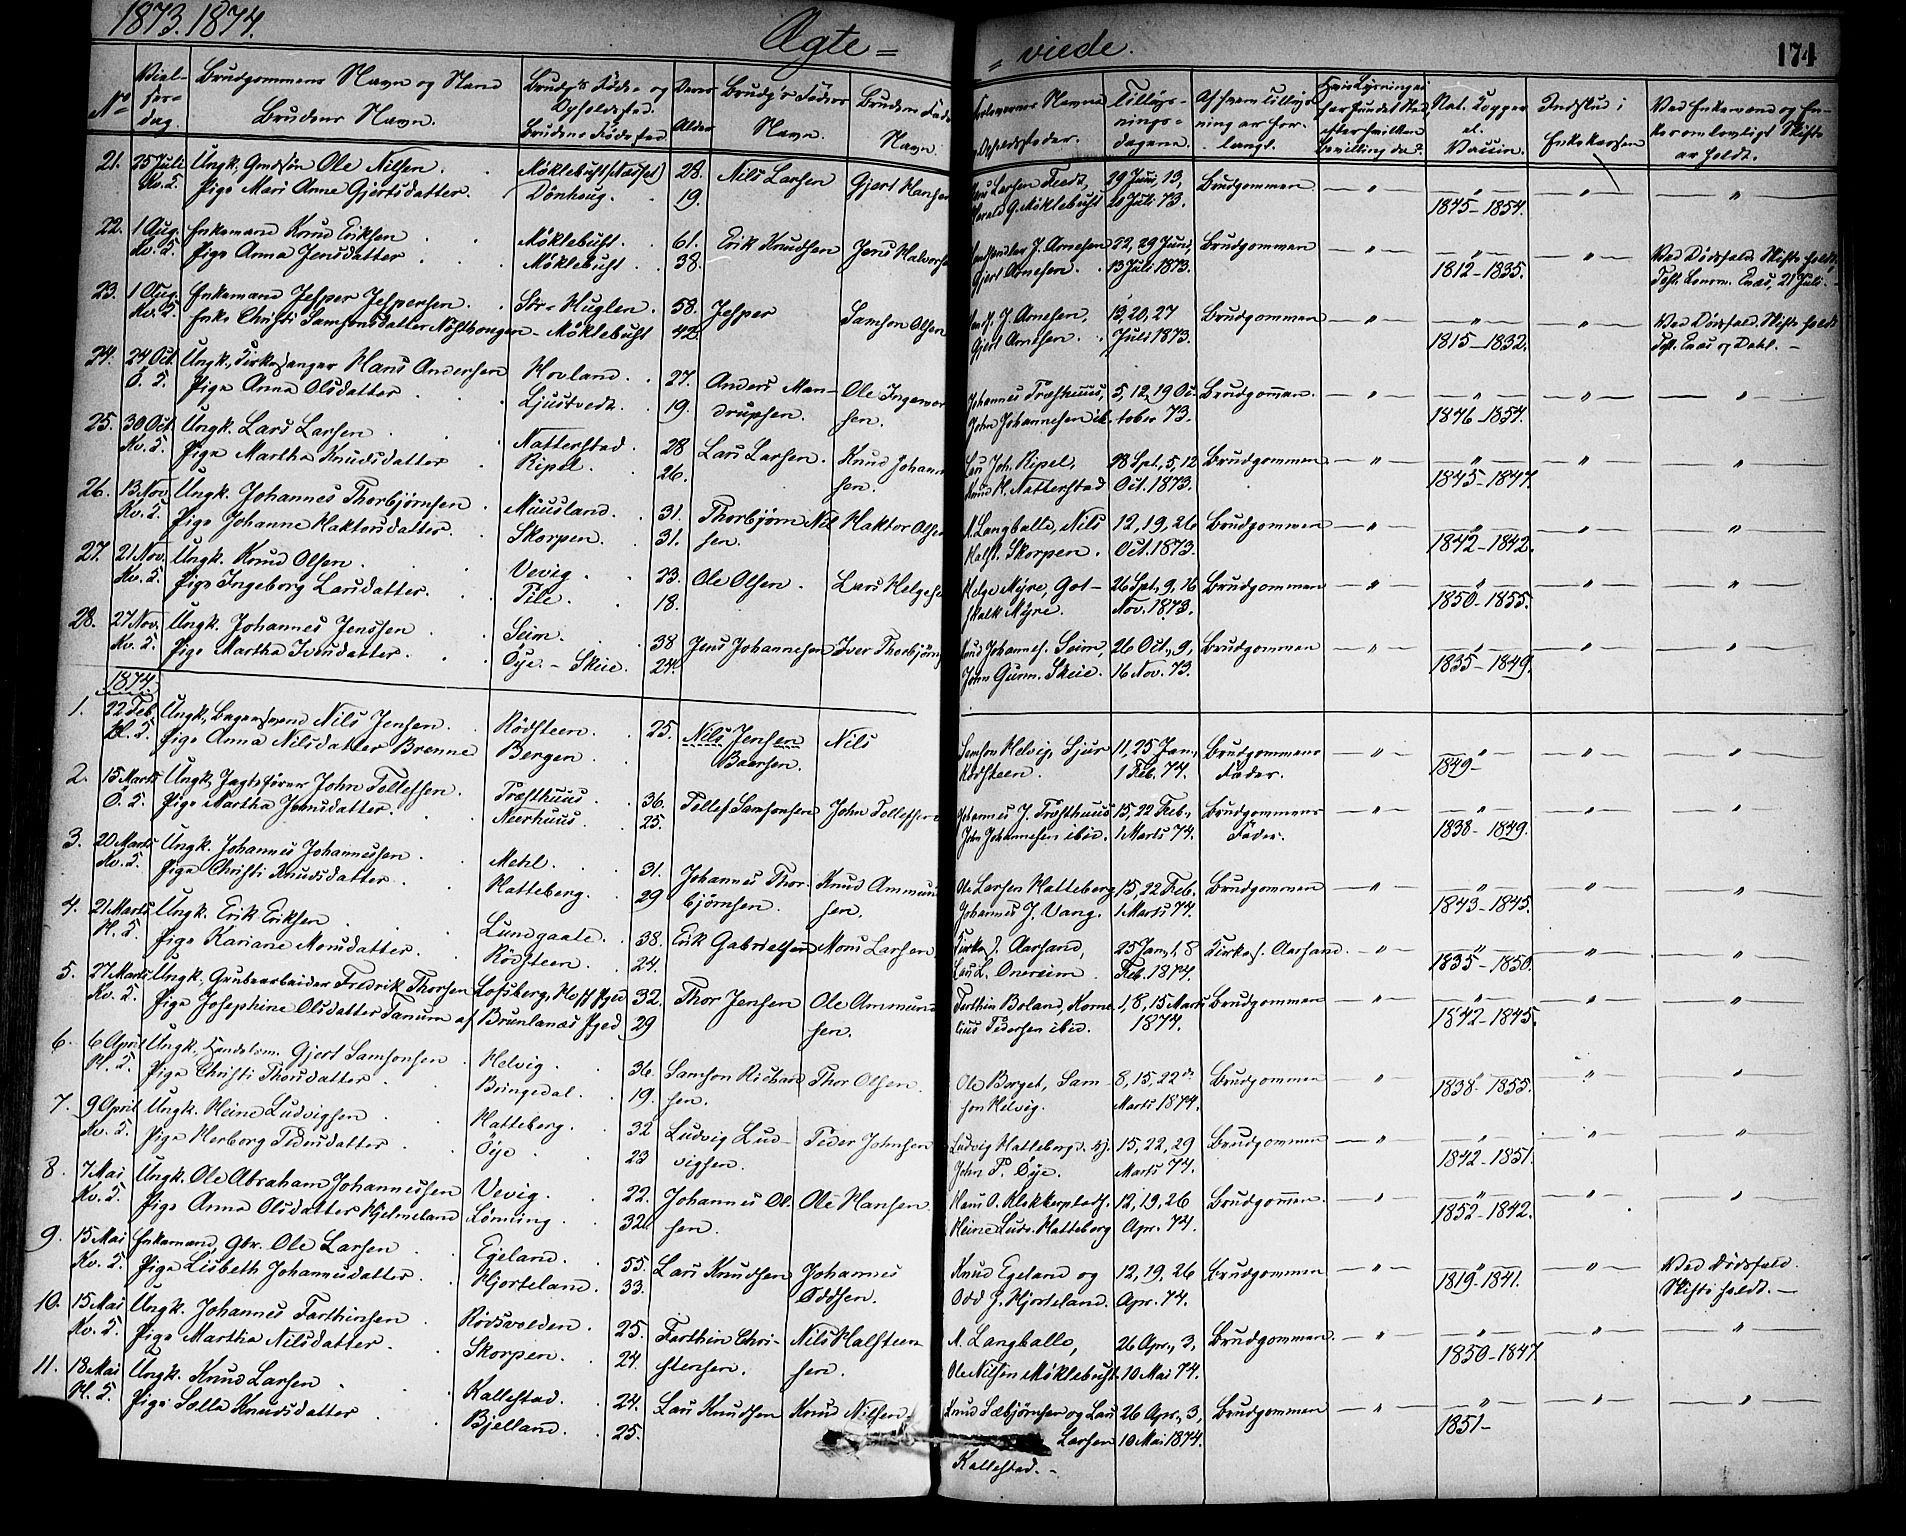 1873.1874.
Ægte = = viede. 174
No Viel-ser-dag. Brudgommens Navn og Stand Brudens Navn. Brudg's Føde- og Opholdssted. Brudens Fødested Deres Alder Brudg's Faders Navn. Brudens Faders Navn. Forlovernes Navne Opholdssteder. Tillysnings-dagene. Af hvem Tillysning er forlangt. Nat. Kopper el. Vaccin. Indskud i Enkekassen Ved Enkemænd og Enker om lovligt Skifte er holdt.
21. 25 Juli Ungk. Gmdsøn Ole Nilsen. Møklebust (Næsset) 28. Nils Larsen Gjert Hansen Larsen Tredt, 29 Juni, 13, Brudgommen — " — — " — — " — "
Kv. S. Pige Mari Anne Gjertsdatter. Dönhoug. 19. Harald G. Møklebust 20 Juli 73. 1845-1854.
22. 1 Aug. Enkemand Knud Eriksen Møklebust. 61. Erik Knudsen Jens Halvorsen J. Arnesen 22, 29 Juni, Brudgommen — " — — " — — " — Ved Dødsfald. Skifte holdt,
Kv. S. Pige Anna Jensdatter. Møklebust. 38. Gjert Arnesen. 13 Juli 1873. 1812-1835. 21 Juli.
23. 1 Aug. Enkemand Jesper Jespersen. Sør-Huglen. 58. Jesper Samson Olsen J. Arnesen, 13, 20, 27 Brudgommen — " — — " — — " — Ved Dødsfald. Skifte holdt
Kv. S. Enke Christi Samsonsdatter - Møklebust 42. Gjert Arnesen. Juli 1873. 1815-1832.
24. 24 Oct. Ungk., Kirkesanger Hans Andersen Hovland. 27. Anders Man- Ole Ingemor Johannes Træsthuus, 5, 12, 19 Oc- Brudgom̅en. — " — — " — — " — "
Ö. S. Pige Anna Olsdatter Ljustvedt. 19. drupsen. sen. John Johannesen ib. tober 73. 1846-1854.
25. 30 Oct. Ungk. Lars Larsen Natterstad. 28 Lars Larsen. Knud Johannesen. Lars Joh. Ripel, 28 Spt., 5, 12 Brudgommen — " — — " — — " — "
Kv. S. Pige Martha Knudsdatter Ripel. 26. Knud K. Natterstad Oct. 1873. 1845-1847.
26. 13 Nov. Ungk. Johannes Thorbjörnsen Muusland. 31. Thorbjörn Nil- Haktor Olsen N. Langballe, Nils 12, 19, 26 Brudgommen — " — — " — — " — "
Kv. S. Pige Johanne Haktorsdatter. Skorpen. 31. sen. Halst. Skorpen. Oct. 1873. 1842-1842.
27. 21 Nov. Ungk. Knud Olsen. Vevig. 23. Ole Olsen. Lars Helgesen Helge Myre, Got- 26 Spt., 9, 16 Brudgommen — " — — " — — " — "
Kv. S. Pige Ingeborg Larsdatter. Tile. 18. skalk Myre. Nov. 1873. 1850-1855.
28. 27 Nov. Ungk. Johannes Jenssen Seim. 38 Jens Johannesen Iver Thorbjörns Johannes. Seim, 26 Oct., 9, Brudgommen — " — — " — — " — "
Kv. S. Pige Martha Iversdatter. Öye - Skeie. 24. John Gunn. Skeie. 16 Nov. 73. 1835-1849.
1874.
1. 22 Feb. Ungk., Bagersvend Nils Jensen. Rödsteen. 25. Nils Jensen Nils Samson Helvig, Sjur 11, 25 Jan., Brudgommens — " — — " — — " — "
H. S. Pige Anna Nilsdatter Brenne Bergen. Baersen. Rödsteen. 1 Feb. 74. Fader. 1849-
2. 15 Marts Ungk, Jagtefører John Tollefsen. Træsthuus. 36. Tollef Samsonsen John Tollefsen Johannes J. Træsthuus 15, 22 Feb., Brudgommens — " — — " — — " — "
Ö. S. Pige Martha Jonsdatter. Neerhuus. 25. John Johannesen ibid. 1 Marts 74. Fader. 1838-1849.
3. 20 Marts Ungk. Johannes Johannessen. Mehl. 31. Johannes Thor- Knud Ammunds Ole Larsen Hatteberg 15, 22 Feb. Brudgommen — " — — " — — " — "
Kv. S. Pige Christi Knudsdatter. Hatteberg. 29 björnsen. sen. Johannes J. Vang. 1 Marts 74. 1843-1845.
4. 21 Marts Ungk. Erik Eriksen Lundgaale. 38. Erik Gabrielsen Mons Larsen Kirkes. Aarsand, 25 Jan., 1, 8 Kirkes. Aarsand. — " — — " — — " — "
H. S. Pige Kariane Monsdatter. Rödsteen. 24. Lars L. Onereim. Feb. 1874. 1835-1850.
5. 27 Marts Ungk., Grubearbeider Fredrik Thorsen 32. Thor Jensen Ole Ammund Torthin Boland, Korne- 1, 8, 15 Marts Brudgommen — " — — " — — " — "
Kv. S. Pige Josephine Olsdatter Tanum af Brunlanæs Pged 29 sen. lius Pedersen ibid. 1874. 1842-1845.
6. 6 April Ungk., Handelsm. Gjert Samsonsen Helvig. 36. Samson Richard- Thor Olsen. Ole Borget, Sam- 8, 15, 22de Brudgommen — " — — " — — " — "
H. S. Pige Christi Thorsdatter. Bringedal. 19. sen. son Helvig. Marts 1874. 1838-1855.
7. 9 April Ungk. Heine Ludvigsen Hatteberg. 32 Ludvig Lud- Peder Johnsen Ludvig Hatteberg 15, 22, 29 Brudgommen — " — — " — — " — "
Kv. S. Pige Herborg Pedersdatter Öye 23 vigsen. John P. Öye. Marts 74. 1842-1851.
8. 7 Mai Ungk. Ole Abraham Johannessen Vevig. 22. Johannes Ol- Ole Hansen Hans O. Klokkerplads. 12, 19, 26 Brudgom̅en. — " — — " — — " — "
Kv. S. Pige Anna Olsdatter Hjelmeland Lönning. 32. sen. Heine Ludv. Hatteberg Apr. 74. 1852-1842.
9. 15 Mai Enkemand, Gbr. Ole Larsen Egeland. 55. Lars Knudsen Johannes Knud Egeland og 12, 19, 26 Brudgommen — " — — " — — " — Ved Dødsfald.
Kv. S. Pige Lisbeth Johannesdatter. Hjorteland. 33. Oddsen. Odd J. Hjorteland. Apr. 74. 1819-1841. Skifte holdt. —
10. 15 Mai Ungk. Johannes Torthinsen Rödsvolden. 25. Torthin Chri- Nils Halsteen- N. Langballe, 26 Apr., 3, Brudgommen. — " — — " — — " — "
Kv. S. Pige Martha Nilsdatter. Skorpen. 24. stensen. sen. Ole Nilsen Møklebust 10 Mai 74. 1850-1847
11. 18 Mai Ungk. Knud Larsen Kallestad. 24. Lars Knudsen Knud Nilsen. Knud Sæbjörnsen og Lars 26 Apr., 3, Brudgommen — " — — " — — " — "
H. S. Pige Salla Knudsdatter Bjelland. 25. Larsen 10 Mai 1874. 1851-
Kallestad. -